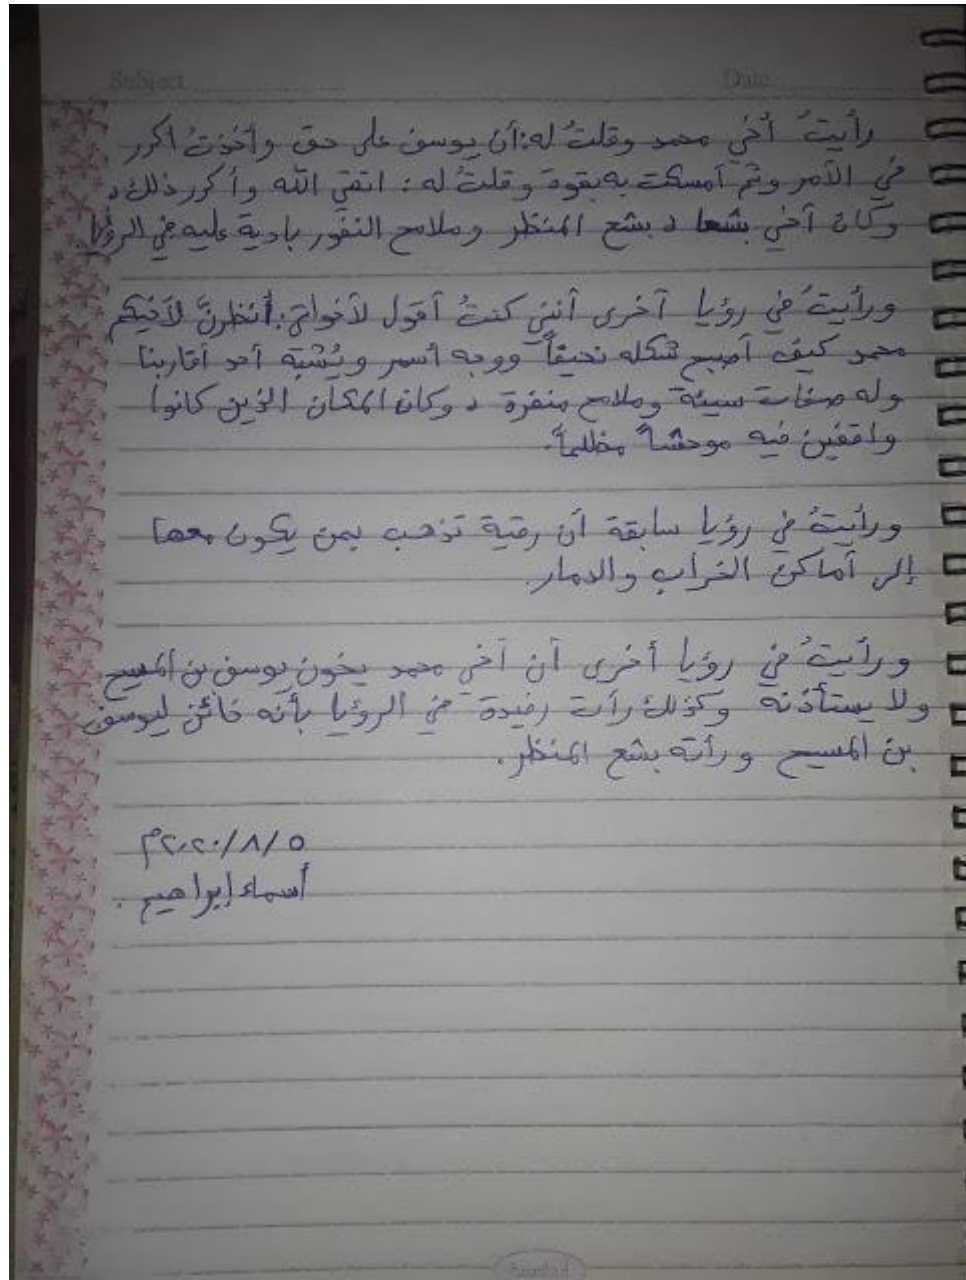 Subject
Date
رأيتُ أخي محمد وقلتُ له: أن يوسف على حق وأخذتُ اكرر
في الأمر وثم أمسكت به بقوة وقلتُ له: اتقي الله وأكرر ذلك،
وكان أخي بشعا، بشع المنظر وملامح النفور بادية عليه في الرؤيا.
ورأيتُ في رؤيا آخرى أنني كنتُ أقول لأخواتي: أنظرنَّ لأخيكم
محمد كيف أصبح شكله نحيفاً ووجه أسمر ويُشبه أحد أقاربنا
وله صفات سيئة وملامح منفرة، وكان المكان الذين كانوا
واقفين فيه موحشاً مظلماً.
ورأيتُ في رؤيا سابقة أن رقية تذهب بمن يكون معها
إلى أماكن الخراب والدمار.
ورأيتُ في رؤيا أخرى أن أخي محمد يخون يوسف بن المسيح
ولا يستأذنه وكذلك رأت رفيدة في الرؤيا بأنه خائن ليوسف
بن المسيح ورأته بشع المنظر.
٥/٨/٢٠٢٠م
أسماء إبراهيم.